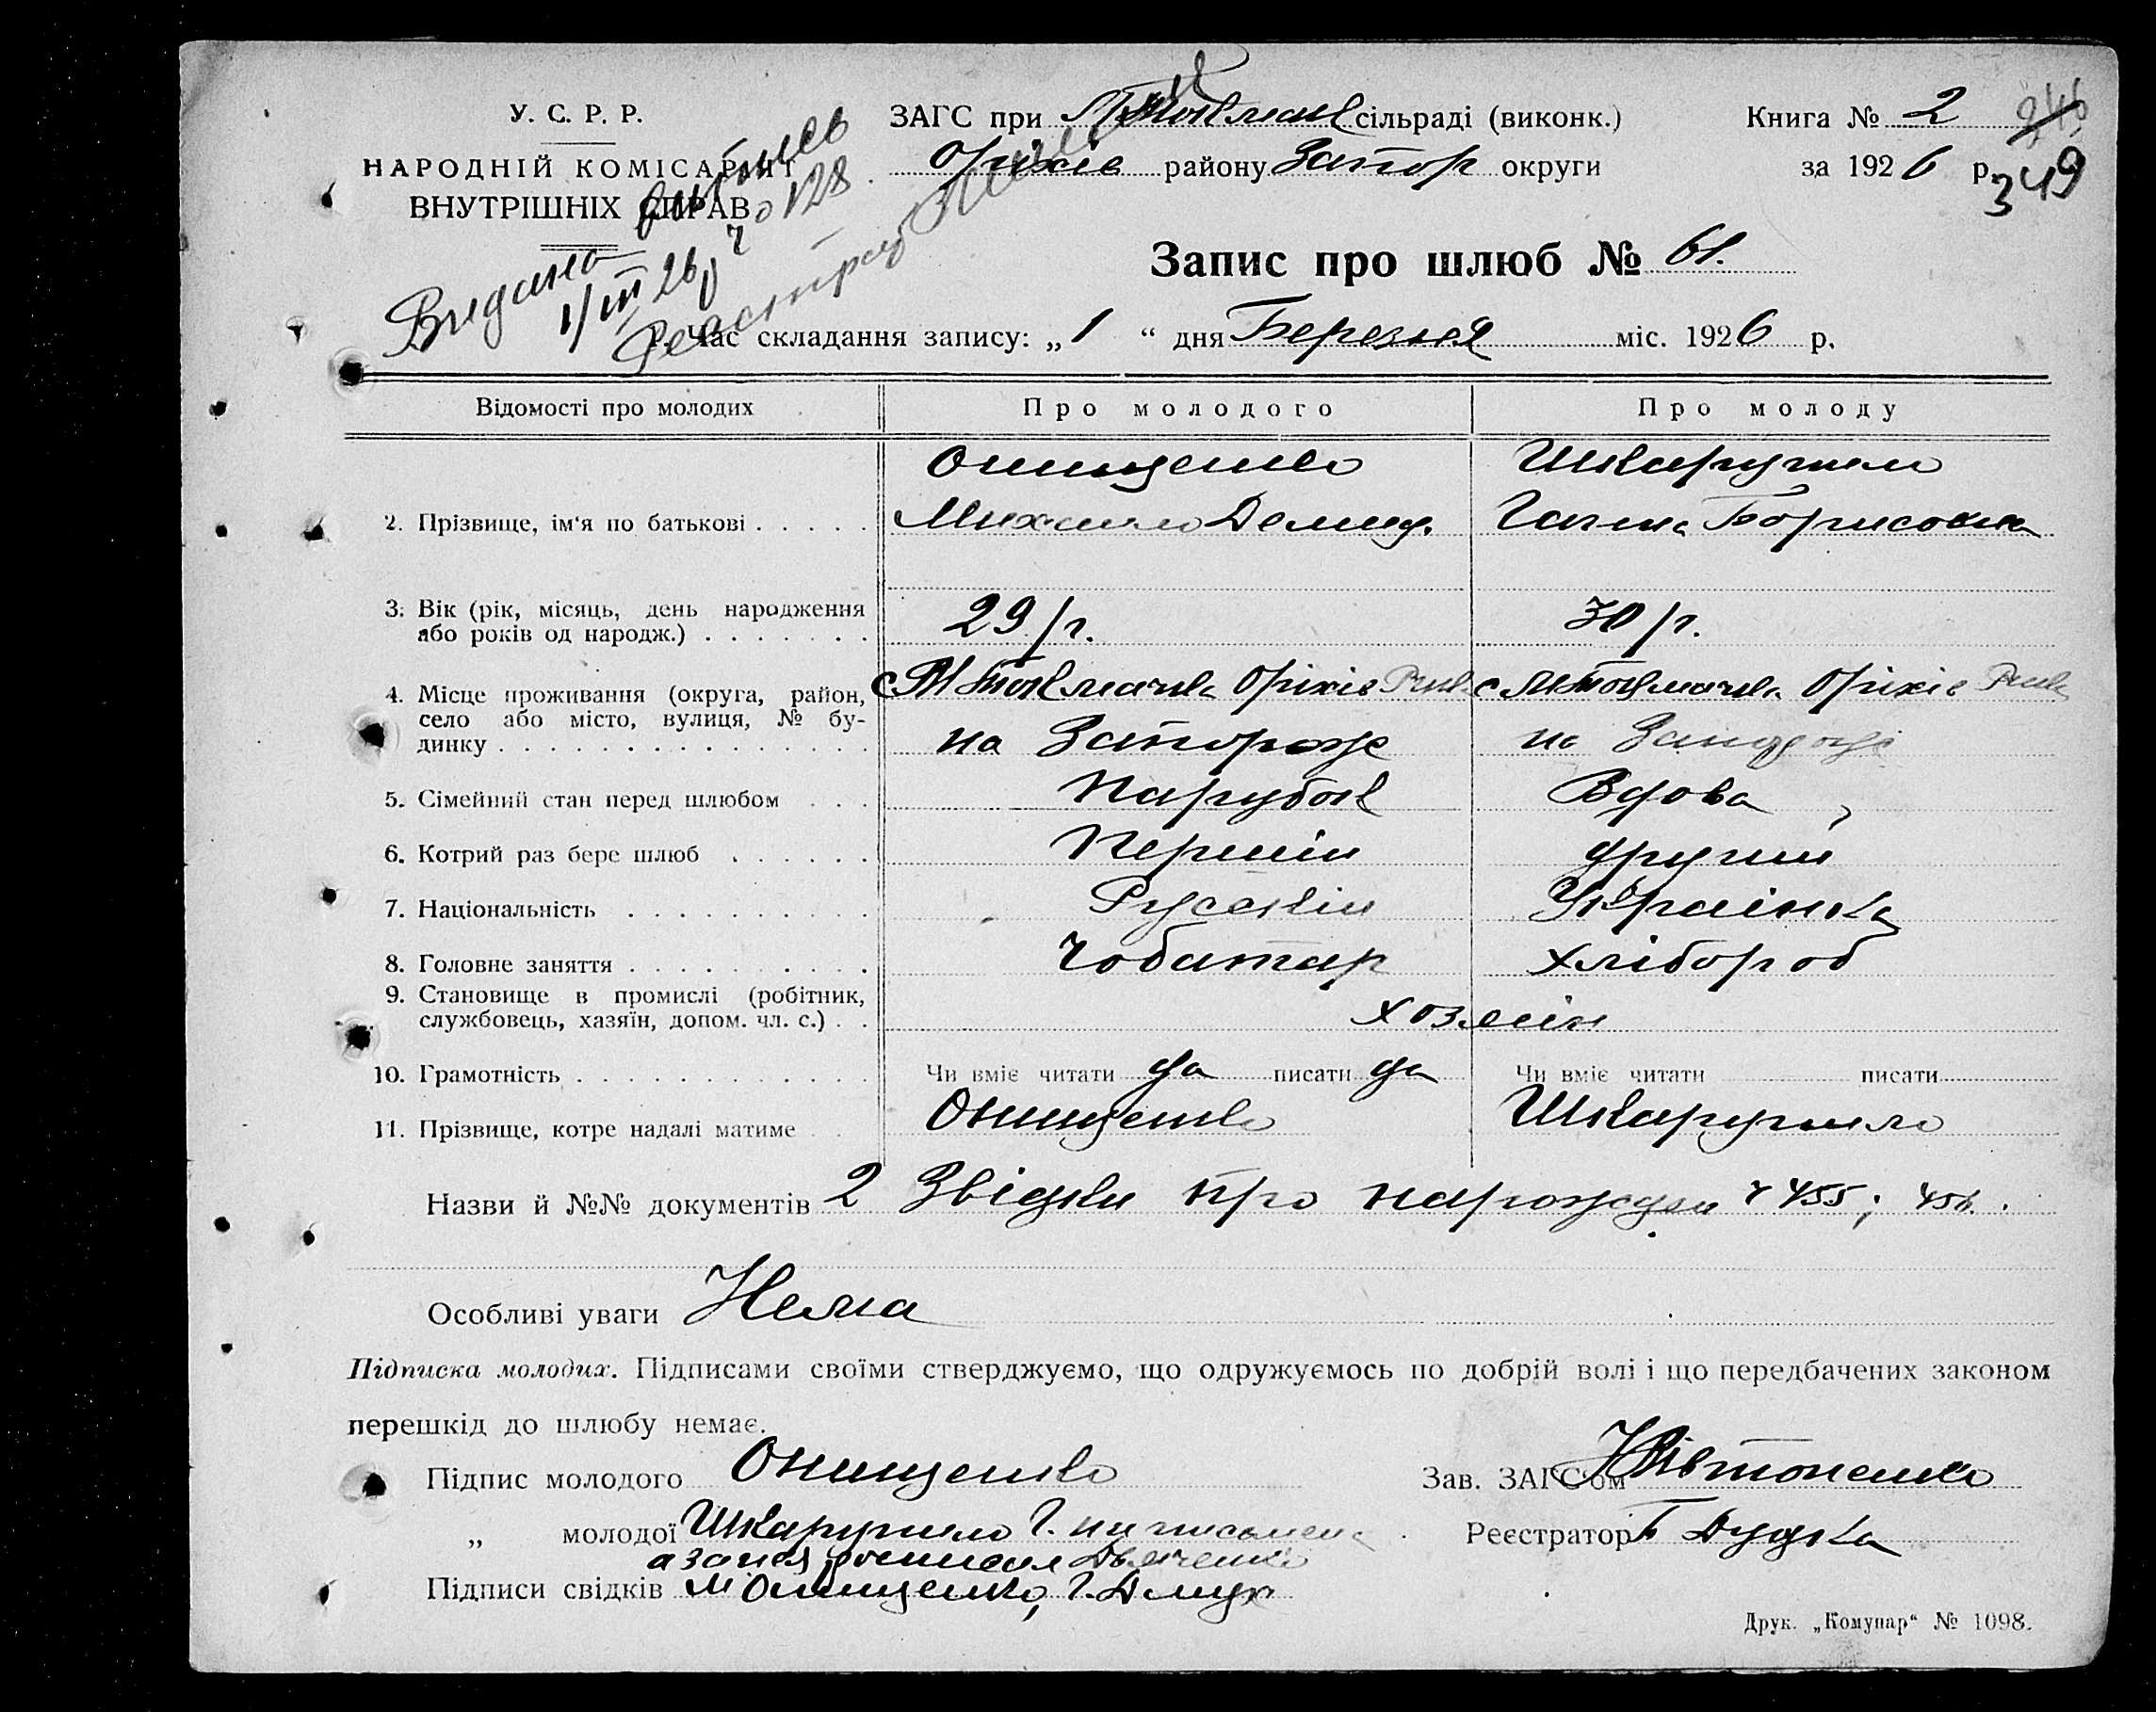 У. С. Р. Р.
НАРОДНІЙ КОМІСАРІЯТ
ВНУТРІШНІХ СПРАВ
Видана
витпись
1/III 26 р ч 128.
ЗАГС при М Токмац сільраді (виконк.)
Оріхів району Запор округи
Книга № 2
246
за 1926 р.
349
Запис про шлюб № 61.
1. Час складання запису: „1“ дня Березня міс. 1926 р.
Відомості про молодих Про молодого Про молоду
Онищенко Шкаружило
2. Прізвище, ім'я по батькові . . . . . Михаило Демид. Ганна Борисовна
3. Вік (рік, місяць, день народження
або років од народж.) . . . . . . . 29 /г. 30 /г.
4. Місце проживання (округа, район, с М Токмачка Оріхів с М Токмачка Оріхів
село або місто, вулиця, № бу-
динку . . . . . . . . . . . . . . . . на Запороже на Запороже
5. Сімейний стан перед шлюбом . . . Парубок Вдова
6. Котрий раз бере шлюб . . . . . . Перший другий
7. Національність . . . . . . . . . . Руський Українка
8. Головне заняття . . . . . . . . . . Чоботар хлібороб
9. Становище в промислі (робітник,
службовець, хазяїн, допом. чл. с.) . . хозяїн
10. Грамотність . . . . . . . . . . . . Чи вміє читати да писати да Чи вміє читати писати
11. Прізвище, котре надалі матиме . . Онищенко Шкаружило
Назви й №№ документів 2 Звідки про народжен ч 455; 456.
Особливі уваги Нема
Підписка молодих. Підписами своїми стверджуємо, що одружуємось по добрій волі і що передбачених законом
перешкід до шлюбу немає.
Підпис молодого Онищенко Зав. ЗАГС'ом
„ молодої Шкаружило Г. ни письмена Реєстратор Дудка
а за нея росписал
Підписи свідків М Онищенко,
Друк. „Комунар“ № 1098.